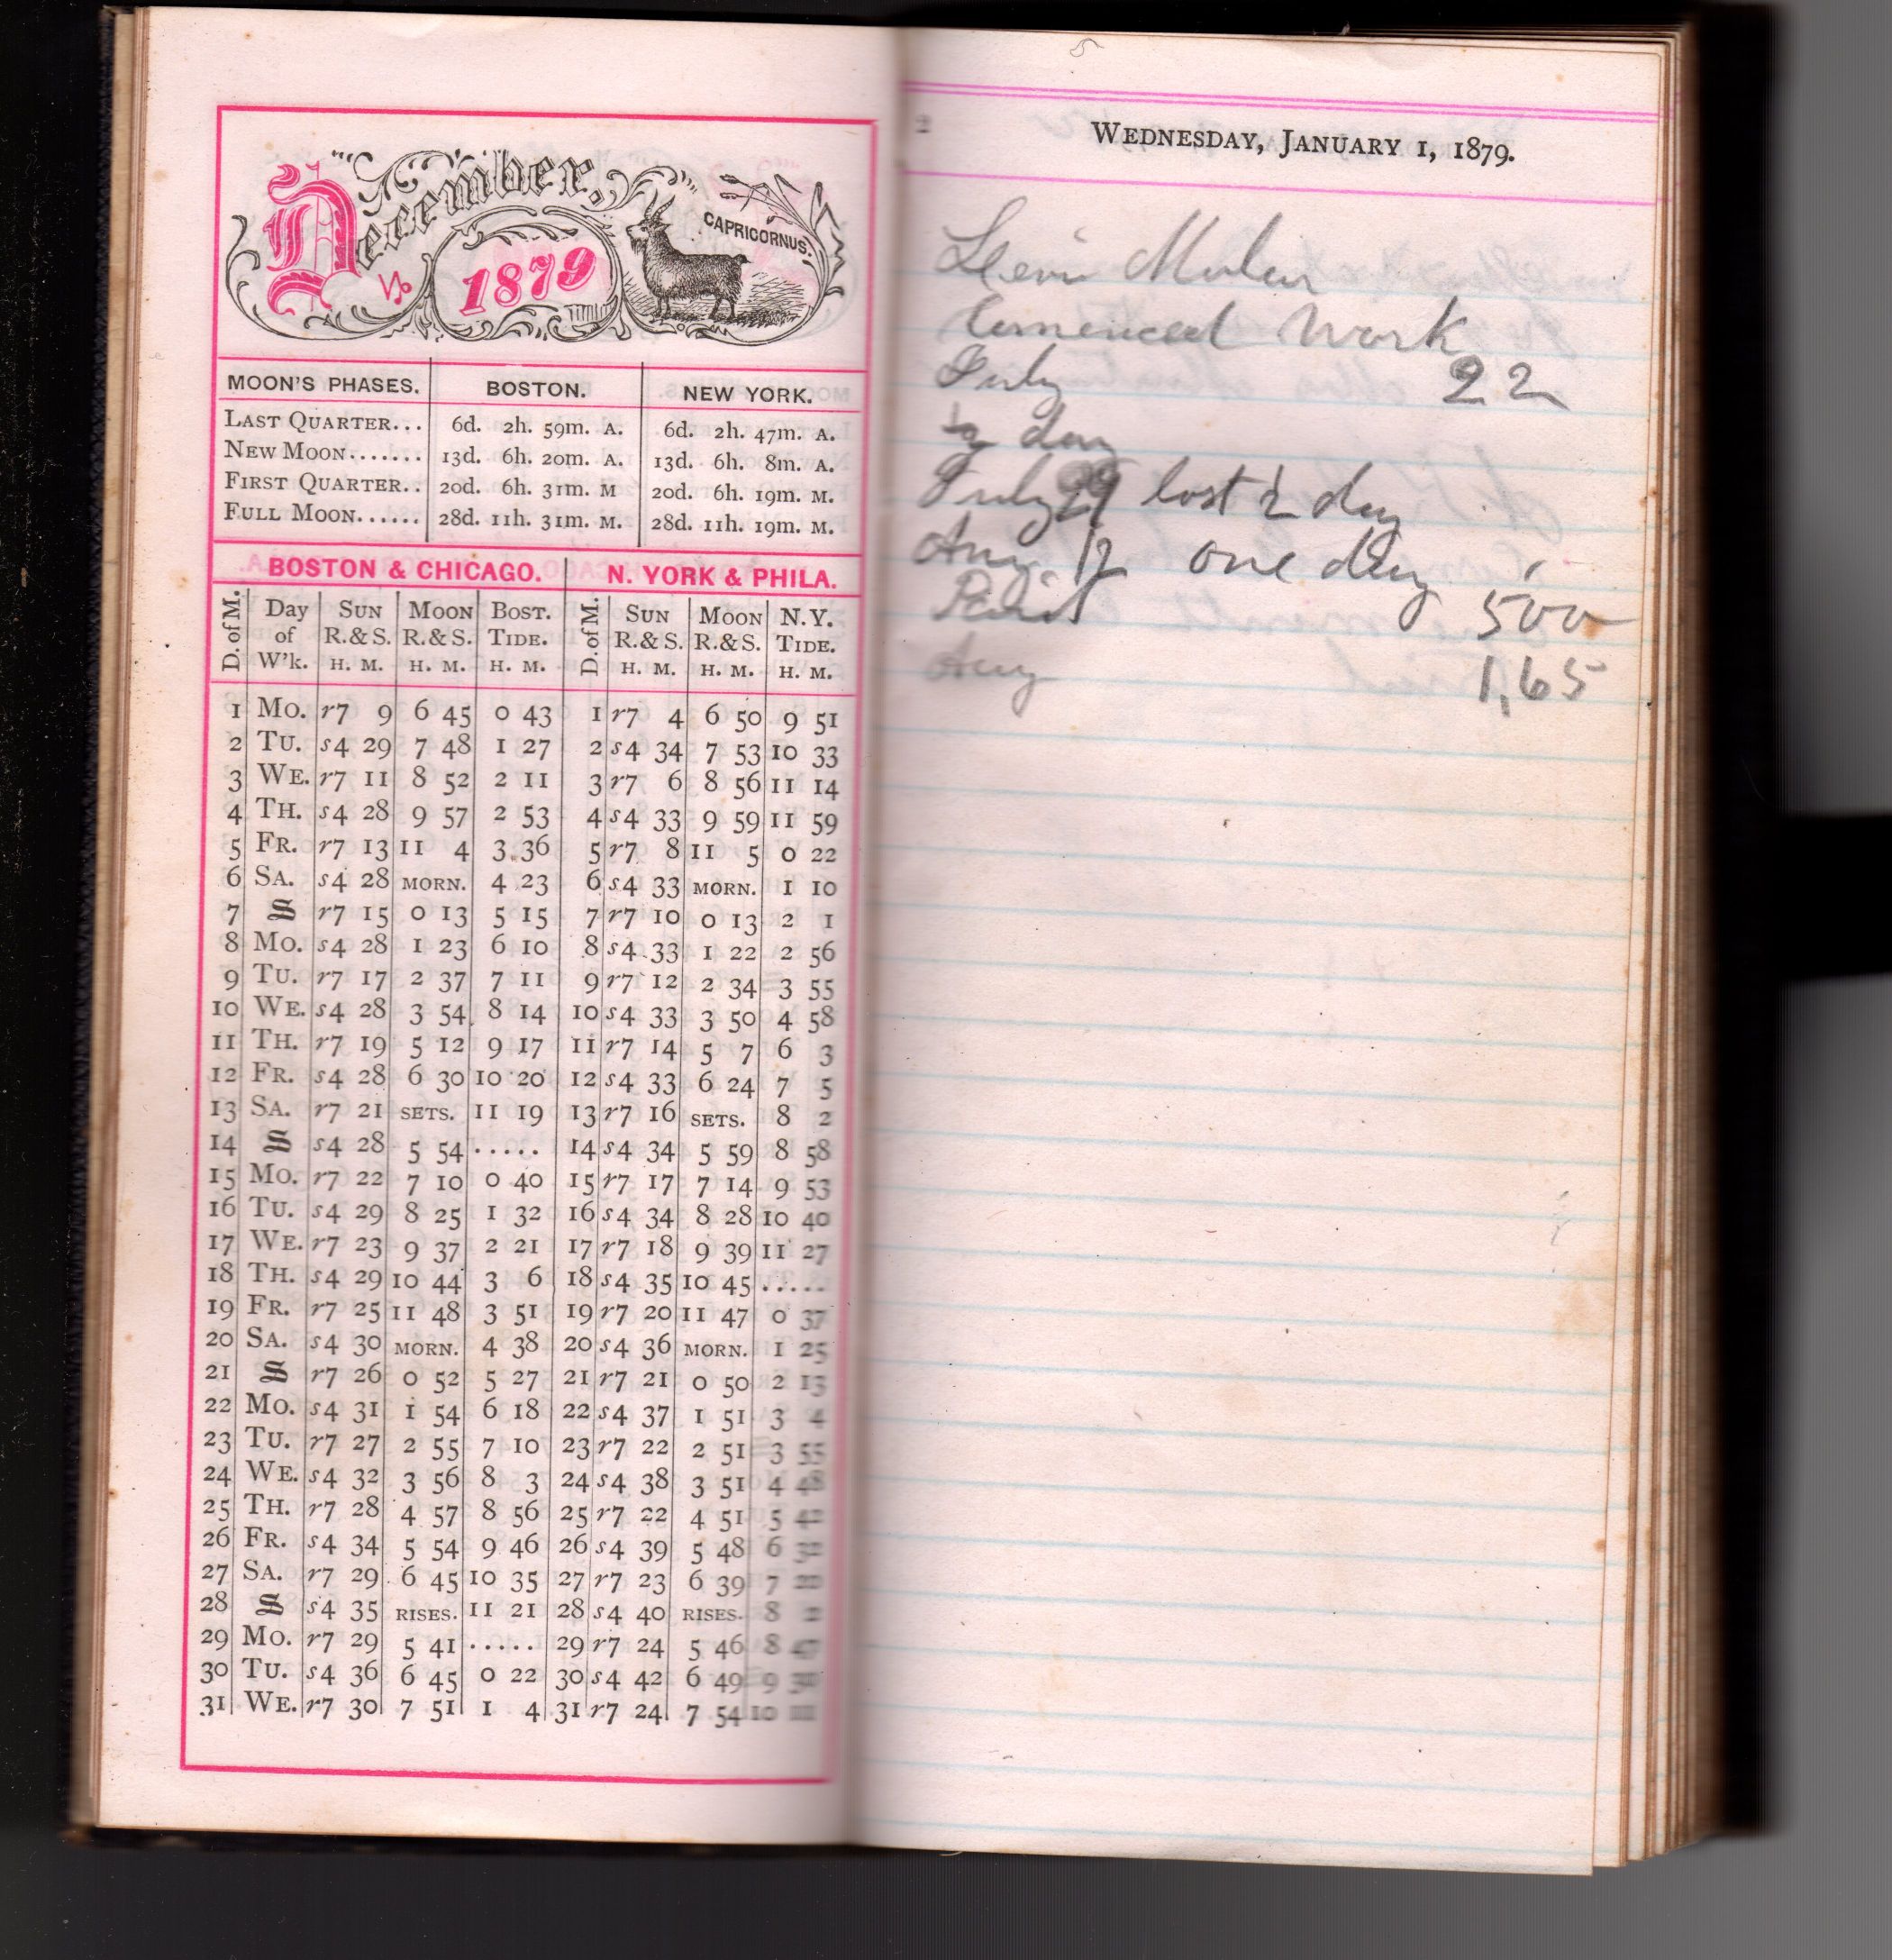 December,
1879
CAPRICORNUS.
MOON'S PHASES. BOSTON. NEW YORK.
LAST QUARTER... 6d. 2h. 59m. A. 6d. 2h. 47m. A.
NEW MOON....... 13d. 6h. 20m. A. 13d. 6h. 8m. A.
FIRST QUARTER.. 20d. 6h. 31m. M 20d. 6h. 19m. M.
FULL MOON...... 28d. 11h. 31m. M. 28d. 11h. 19m. M.
BOSTON & CHICAGO. N. YORK & PHILA.
D. of M. Day of W'k. SUN R.&S. H. M. MOON R.&S. H. M. BOST. TIDE. H. M. D. of M. SUN R.&S. H. M. MOON R.&S. H. M. N.Y. TIDE. H. M.
1 MO. r7 9 6 45 0 43 1 r7 4 6 50 9 51
2 TU. s4 29 7 48 1 27 2 s4 34 7 53 10 33
3 WE. r7 11 8 52 2 11 3 r7 6 8 56 11 14
4 TH. s4 28 9 57 2 53 4 s4 33 9 59 11 59
5 FR. r7 13 11 4 3 36 5 r7 8 11 5 0 22
6 SA. s4 28 MORN. 4 23 6 s4 33 MORN. 1 10
7 S r7 15 0 13 5 15 7 r7 10 0 13 2 1
8 MO. s4 28 1 23 6 10 8 s4 33 1 22 2 56
9 TU. r7 17 2 37 7 11 9 r7 12 2 34 3 55
10 WE. s4 28 3 54 8 14 10 s4 33 3 50 4 58
11 TH. r7 19 5 12 9 17 11 r7 14 5 7 6 3
12 FR. s4 28 6 30 10 20 12 s4 33 6 24 7 5
13 SA. r7 21 SETS. 11 19 13 r7 16 SETS. 8 2
14 S s4 28 5 54 ..... 14 s4 34 5 59 8 58
15 MO. r7 22 7 10 0 40 15 r7 17 7 14 9 53
16 TU. s4 29 8 25 1 32 16 s4 34 8 28 10 40
17 WE. r7 23 9 37 2 21 17 r7 18 9 39 11 27
18 TH. s4 29 10 44 3 6 18 s4 35 10 45 .....
19 FR. r7 25 11 48 3 51 19 r7 20 11 47 0 37
20 SA. s4 30 MORN. 4 38 20 s4 36 MORN. 1 25
21 S r7 26 0 52 5 27 21 r7 21 0 50 2 13
22 MO. s4 31 1 54 6 18 22 s4 37 1 51 3 4
23 TU. r7 27 2 55 7 10 23 r7 22 2 51 3 55
24 WE. s4 32 3 56 8 3 24 s4 38 3 51 4 48
25 TH. r7 28 4 57 8 56 25 r7 22 4 51 5 42
26 FR. s4 34 5 54 9 46 26 s4 39 5 48 6 32
27 SA. r7 29 6 45 10 35 27 r7 23 6 39 7
28 S s4 35 RISES. 11 21 28 s4 40 RISES. 8 2
29 MO. r7 29 5 41 ..... 29 r7 24 5 46 8 47
30 TU. s4 36 6 45 0 22 30 s4 42 6 49 9
31 WE. r7 30 7 51 1 4 31 r7 24 7 54 10
2
WEDNESDAY, JANUARY 1, 1879.
Levi
Comenced Work
July 22
½ day
July 29 lost ½ day
Aug 12 one day
Paid 500
Aug 1,65